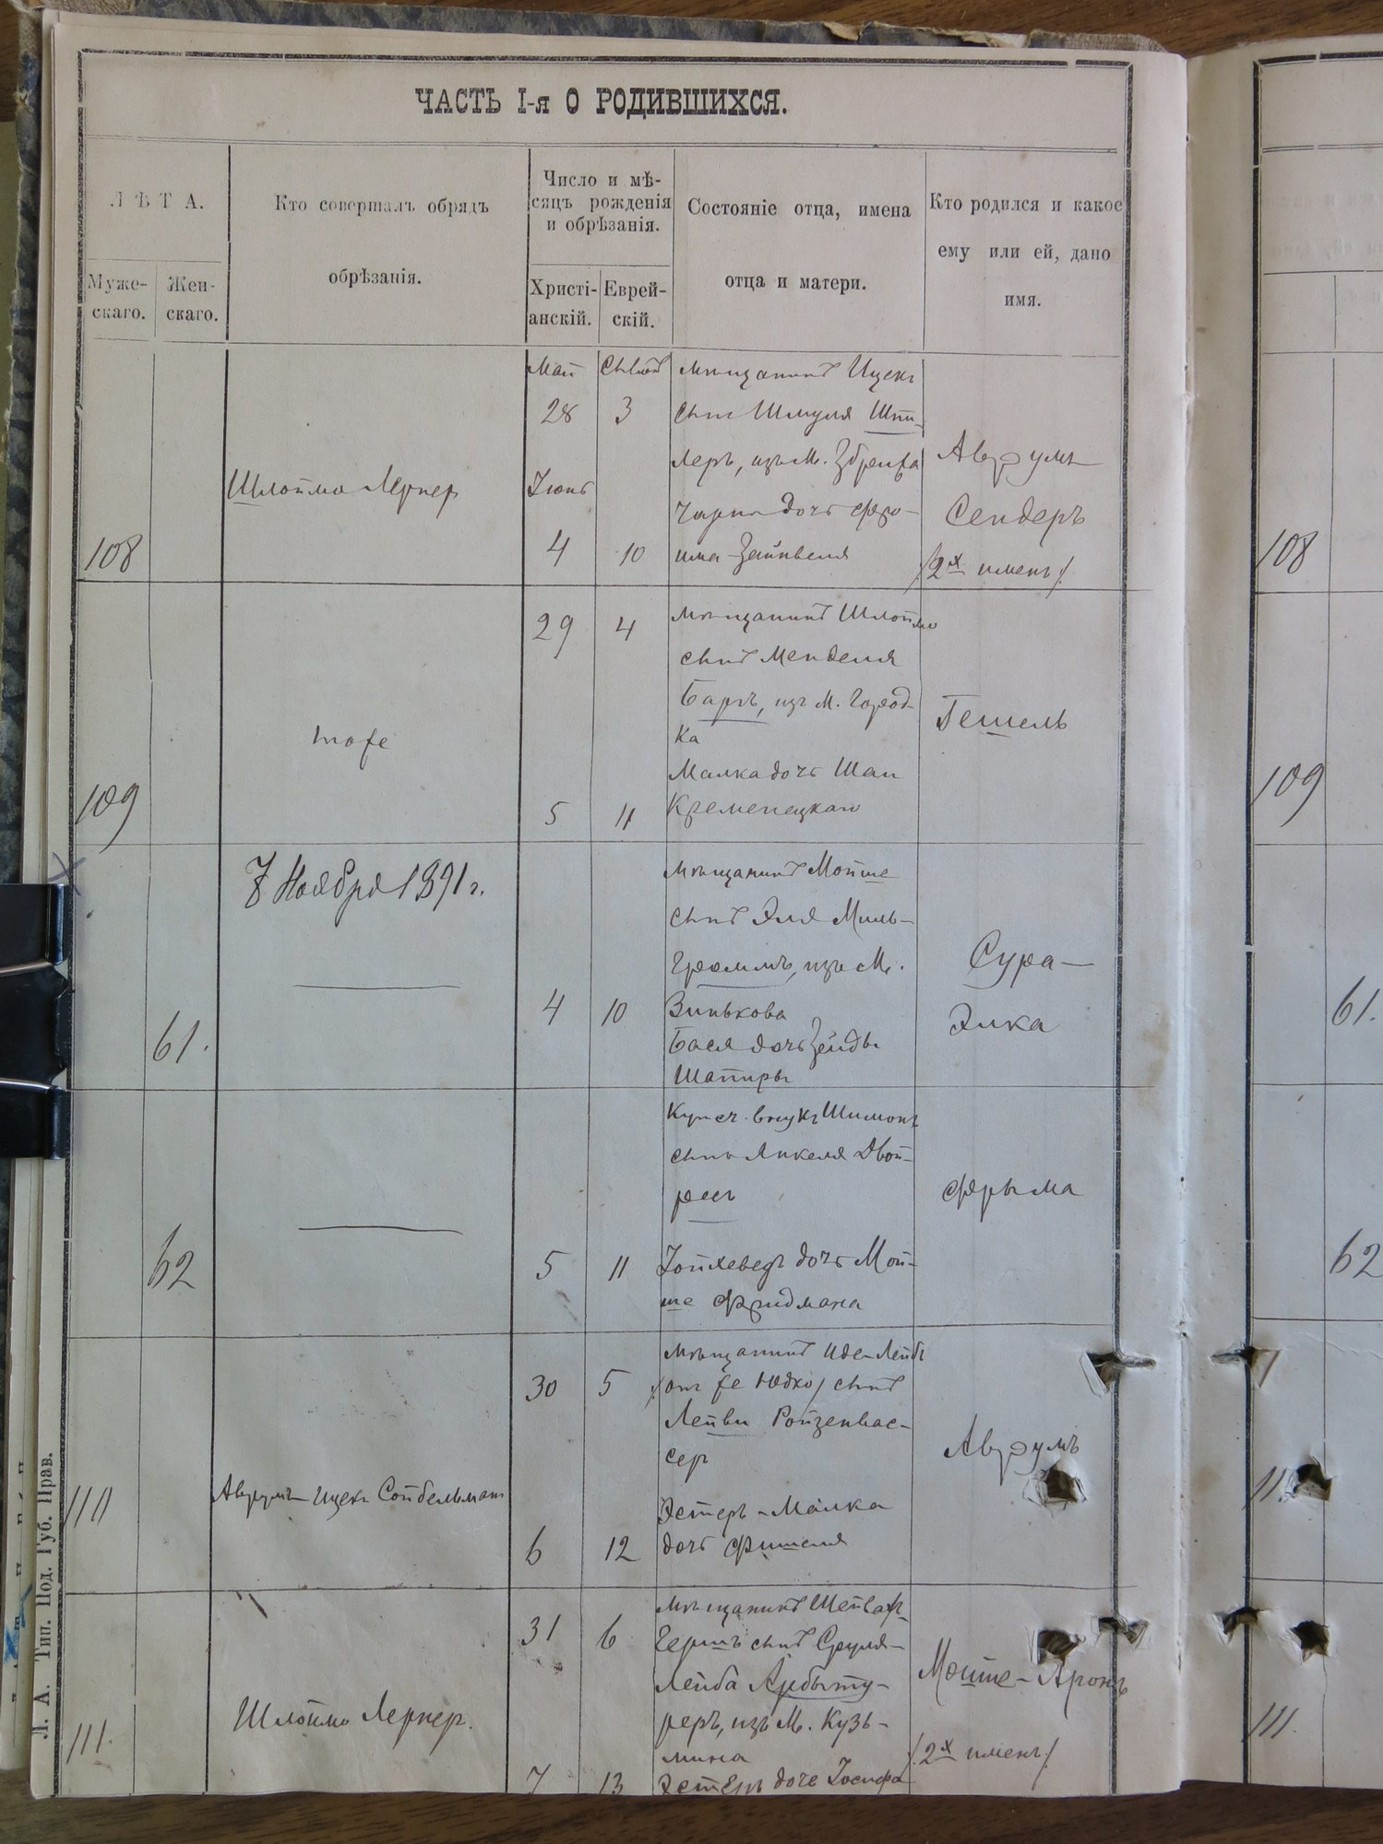 ЧАСТЬ I-я О РОДИВШИХСЯ.
ЛѢТА.
Муже-
скаго.
Жен-
скаго.
Кто совершалъ обрядъ
обрѣзанія.
Число и мѣ-
сяцъ рожденія
и обрѣзанія.
Христі-
анскій.
Еврей-
скій.
Состояніе отца, имена
отца и матери.
Кто родился и какое
ему или ей, дано
имя.
108
Шлойма Лернер
Май
28
Іюнь
4
3
10
мѣщанинъ Ицекъ
сынъ Шмуля Шпи-
леръ, изъ м.
Чарна дочь Фро-
има-Зайнвеля
Аврумъ
Сендеръ
/2х именъ/
108
109
тоже
29
4
5
11
мѣщанинъ Шлойма
сынъ Менделя
Баръ, изъ м. Город-
ка
Малка дочь Шаи
Кременецкаго
Гешель
109
61.
7 Ноября 1891 г.
4
10
мѣщанинъ Мойше
сынъ Эля Миль-
громмъ, изъ м.
Винькова
Бася дочь Зейды
Шапиры
Сура-
Элка
61.
62
5
11
Купеч. внукъ Шимонъ
сынъ Янкеля Двой-
ресъ
Іойхеведъ дочь Мой-
ше Фридмана
Фрыма
62
110
Аврумъ-Ицекъ Сойбельман
30
5
6
12
мѣщанинъ Иде-Лейбъ
/онъ же Юдко/ сынъ
Лейви Ройзенвас-
сер
Эстеръ-Малка
дочь Фишеля
Аврумъ
11
111.
Шлойма Лернер.
31
6
7
13
мѣщанинъ
Гершъ сынъ Сруля-
Лейба Арбыту-
реръ, изъ м. Кузь-
мина
Эстеръ дочь Іосифа
Мойше-Аронъ
/2х именъ/
111.
Л. А. Тип. Под. Губ. Прав.